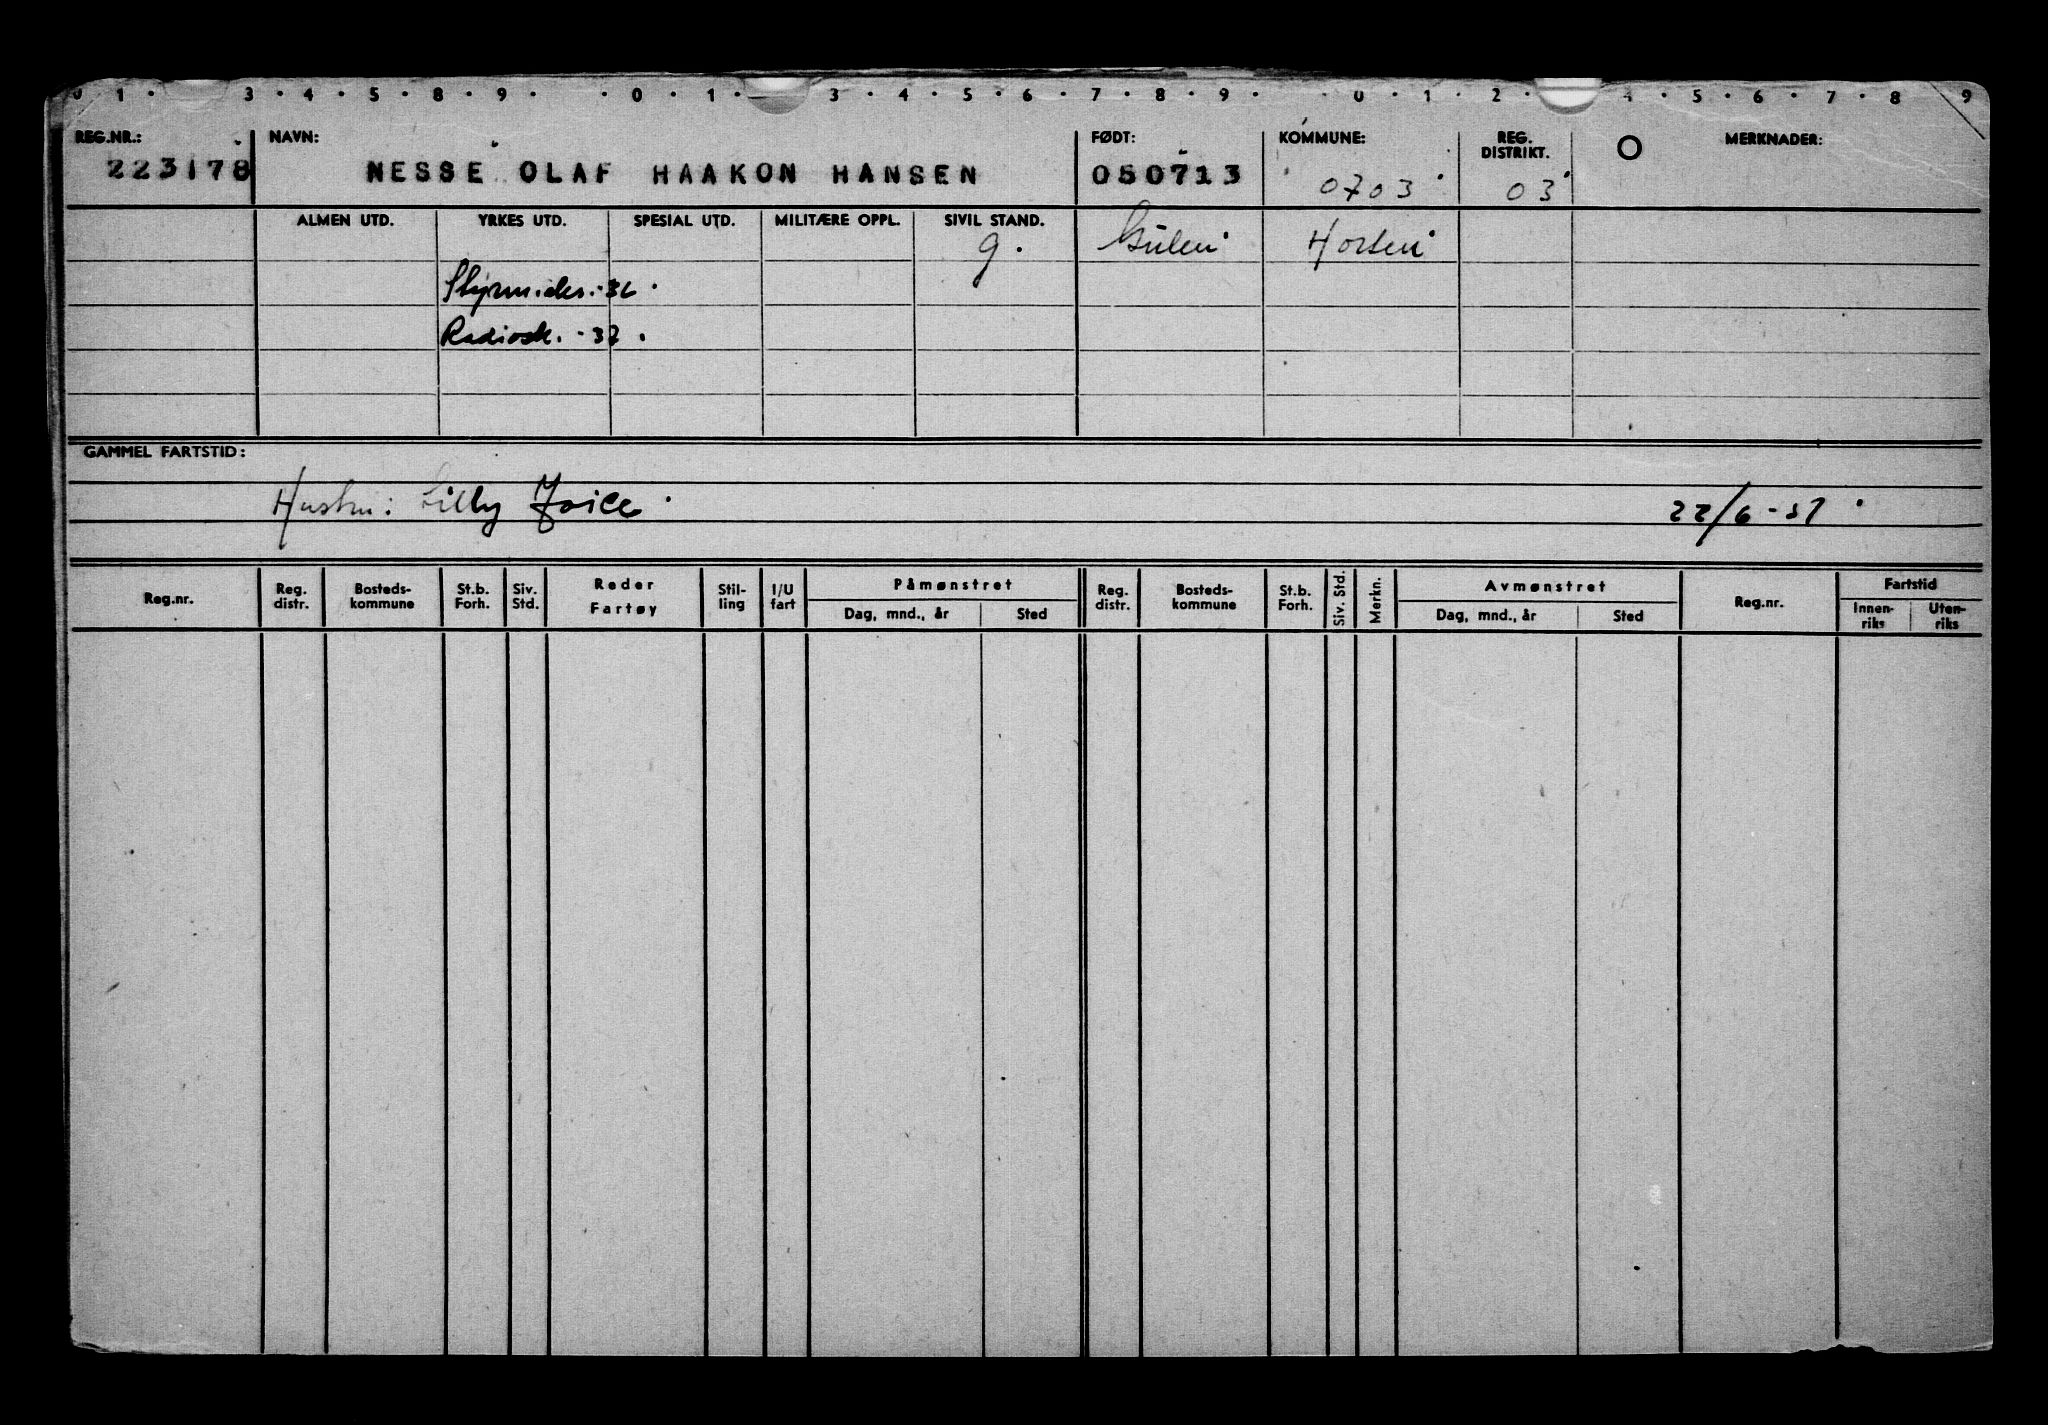 0 1 · 3 · 4 · 5 · 8 · 9 · · 0 · 1 · 3 · 4 · 5 · 6 · 7 · 8 · 9 · · 0 · 1 · 2 · 4 · 5 · 6 · 7 · 8 9
REG.NR.: NAVN: FØDT: KOMMUNE: REG. DISTRIKT. O MERKNADER:
223178 NESSE OLAF HAAKON HANSEN 050713 0703 03
ALMEN UTD. YRKES UTD. SPESIAL UTD. MILITÆRE OPPL. SIVIL STAND.
g. Gulen Horten
-36
Radiosk. -37
GAMMEL FARTSTID:
Hustru: Lilly Joice 22/6-51
Reg.nr. Reg. distr. Bosteds-kommune St.b. Forh. Siv. Std. Reder Fartøy Stil-ling I/U fart Påmønstret Reg. distr. Bosteds-kommune St.b. Forh. Siv. Std. Merkn. Avmønstret Reg.nr. Fartstid
Dag, mnd., år Sted Dag, mnd., år Sted Innen-riks Uten-riks